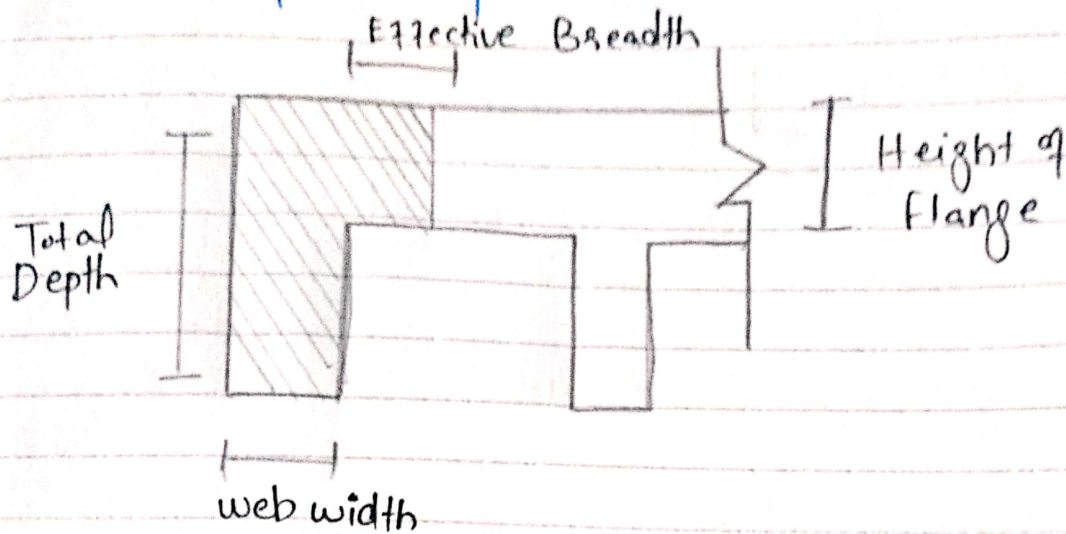 Effective Breadth
Height of
Flange
Total
Depth
web width